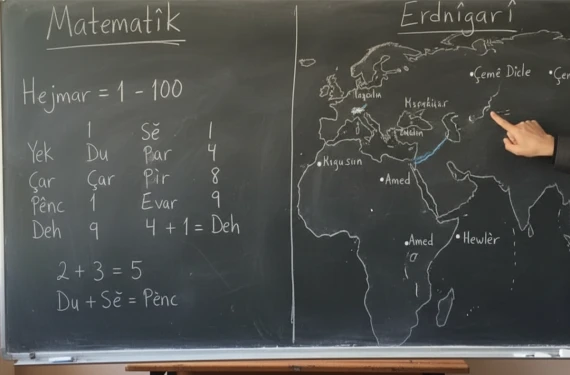 Matematîk
Hejmar = 1 - 100
1 Sĕ 1
Yek Du Par 4
Çar Çar Pîr 8
Pênc 1 Evar 9
Deh 9 4 + 1 = Deh
2 + 3 = 5
Du + Sĕ = Pènc
Erdnîgarî
Çemê Dîcle
Amed
Amed
Hewlêr